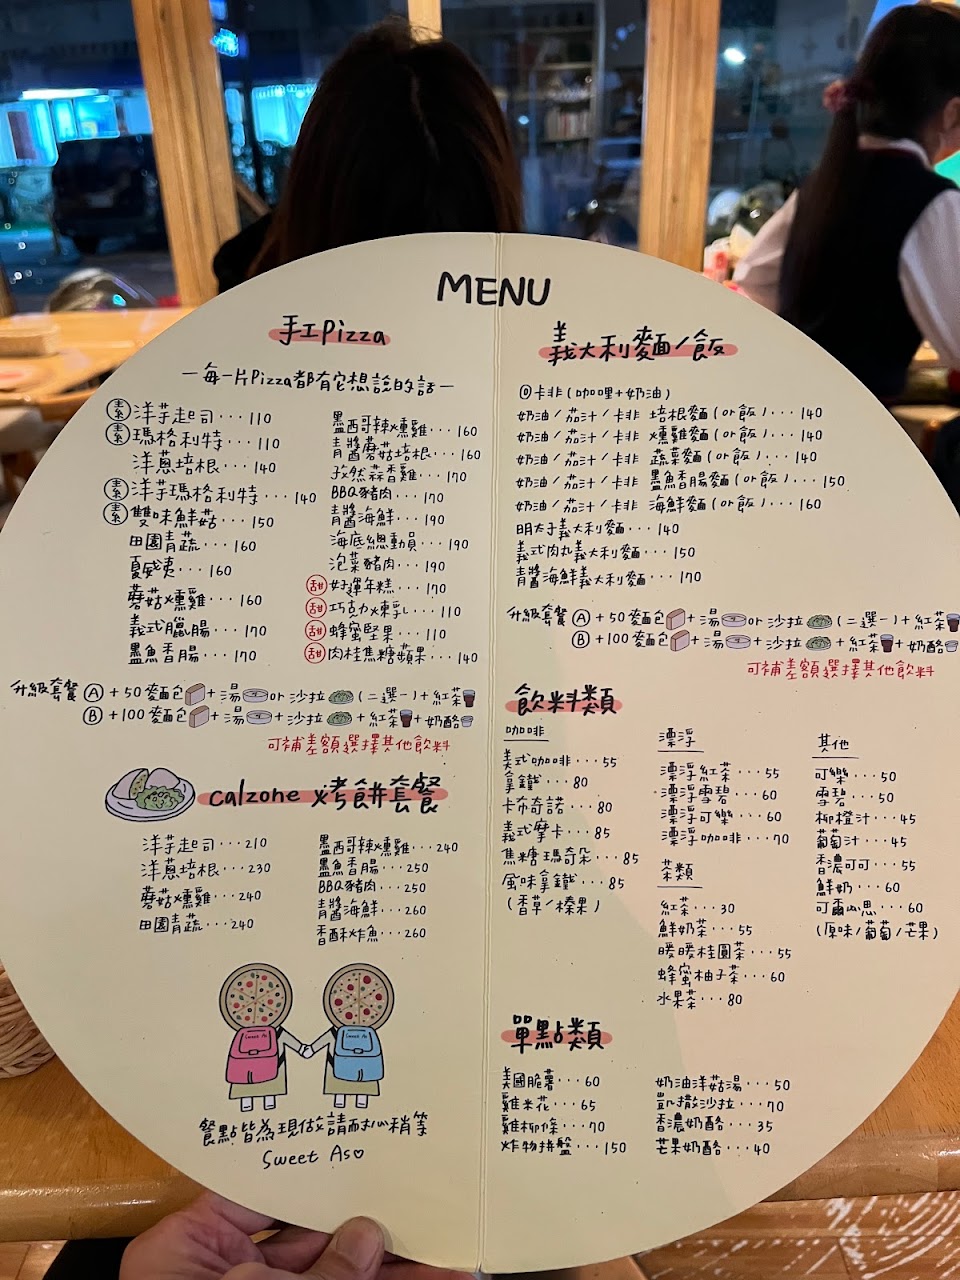 MENU
手工Pizza
—每一片Pizza都有它想說的話—
素 洋芋起司···110
素 瑪格利特···110
洋蔥培根···140
素 洋芋瑪格利特···140
素 雙味鮮菇···150
田園青蔬···160
夏威夷···160
蘑菇燻雞···160
義式臘腸···170
墨魚香腸···170
墨西哥辣燻雞···160
青醬蘑菇培根···160
孜然蒜香雞···170
BBQ豬肉···170
青醬海鮮···190
海底總動員···190
泡菜豬肉···190
甜 好運年糕···170
甜 巧克力煉乳···110
甜 蜂蜜堅果···110
甜 肉桂焦糖蘋果···140
升級套餐 A +50 麵包+湯or沙拉(二選一)+紅茶
B +100 麵包+湯+沙拉+紅茶+奶酪
可補差額選擇其他飲料
calzone 烤餅套餐
洋芋起司···210
洋蔥培根···230
蘑菇燻雞···240
田園青蔬···240
墨西哥辣燻雞···240
墨魚香腸···250
BBQ豬肉···250
青醬海鮮···260
香酥炸魚···260
Sweet As
Sweet As
餐點皆為現做請耐心稍等
Sweet As♡
義大利麵/飯
◎卡非(咖哩+奶油)
奶油/茄汁/卡非 培根麵(or飯)···140
奶油/茄汁/卡非 燻雞麵(or飯)···140
奶油/茄汁/卡非 蔬菜麵(or飯)···140
奶油/茄汁/卡非 墨魚香腸麵(or飯)···150
奶油/茄汁/卡非 海鮮麵(or飯)···160
明太子義大利麵···140
義式肉丸義大利麵···150
青醬海鮮義大利麵···170
升級套餐 A +50 麵包+湯or沙拉(二選一)+紅茶
B +100 麵包+湯+沙拉+紅茶+奶酪
可補差額選擇其他飲料
飲料類
咖啡
義式咖啡···55
拿鐵···80
卡布奇諾···80
義式摩卡···85
焦糖瑪奇朵···85
風味拿鐵···85
(香草/榛果)
漂浮
漂浮紅茶···55
漂浮雪碧···60
漂浮可樂···60
漂浮咖啡···70
茶類
紅茶···30
鮮奶茶···55
暖暖桂圓茶···55
蜂蜜柚子茶···60
水果茶···80
其他
可樂···50
雪碧···50
柳橙汁···45
葡萄汁···45
香濃可可···55
鮮奶···60
可爾必思···60
(原味/葡萄/芒果)
單點類
美國脆薯···60
雞米花···65
雞柳條···70
炸物拼盤···150
奶油洋菇湯···50
凱撒沙拉···70
香濃奶酪···35
芒果奶酪···40